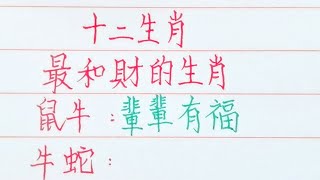 十二生肖
最和財的生肖
鼠牛：輩輩有福
牛蛇：